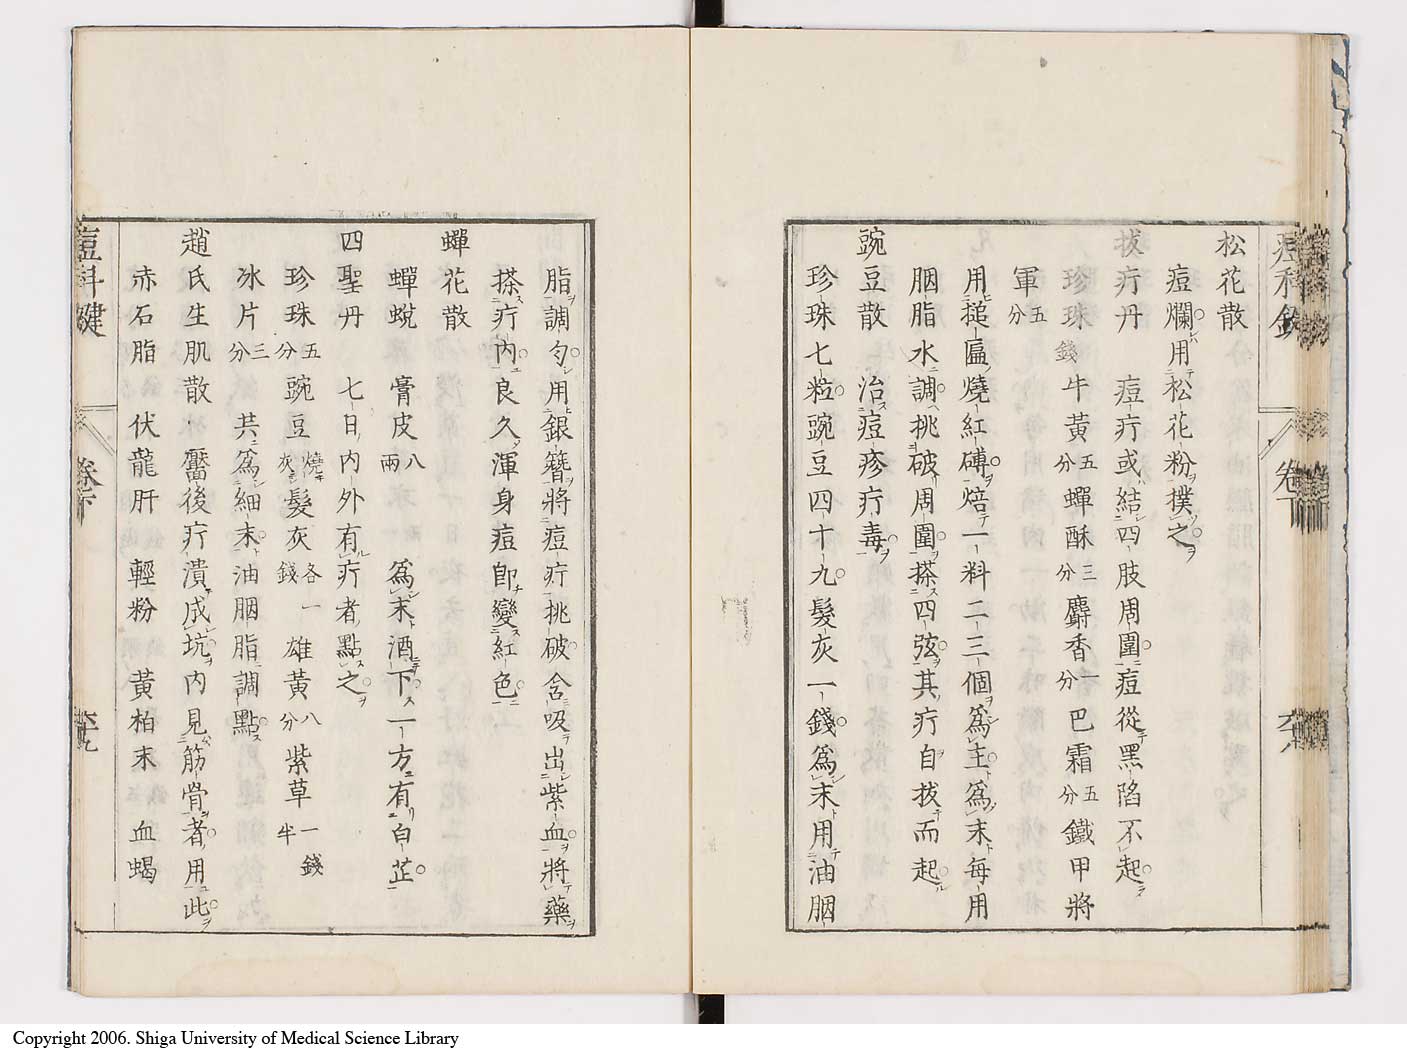 痘科鍵
卷下
松花散
痘爛用松花粉撲之
拔疔丹 痘疔或結四肢周圍痘從黑陷不起
珍珠錢牛黃五分蟬酥三分麝香一分巴霜五分鐵甲將
軍五分
用搥匾燒紅磚焙一料二三個爲主爲末每用
胭脂水調挑破周圍搽四弦其疔自拔而起
豌豆散 治痘疹疔毒
珍珠七粒豌豆四十九髮灰一錢爲末用油胭
脂調勻用銀簪將痘疔挑破含吸出紫血將藥
搽疔內良久渾身痘卽變紅色
蟬花散
蟬蛻 膏皮八兩 爲末酒下一方有白芷
四聖丹 七日內外有疔者點之
珍珠五分豌豆燒灰髮灰各一錢雄黃八分紫草一錢半
冰片三分 共爲細末油胭脂調點
趙氏生肌散 靨後疔潰成坑內見筋骨者用此
赤石脂 伏龍肝 輕粉 黃柏末 血蝎
痘科鍵
卷下
六十九
Copyright 2006. Shiga University of Medical Science Library